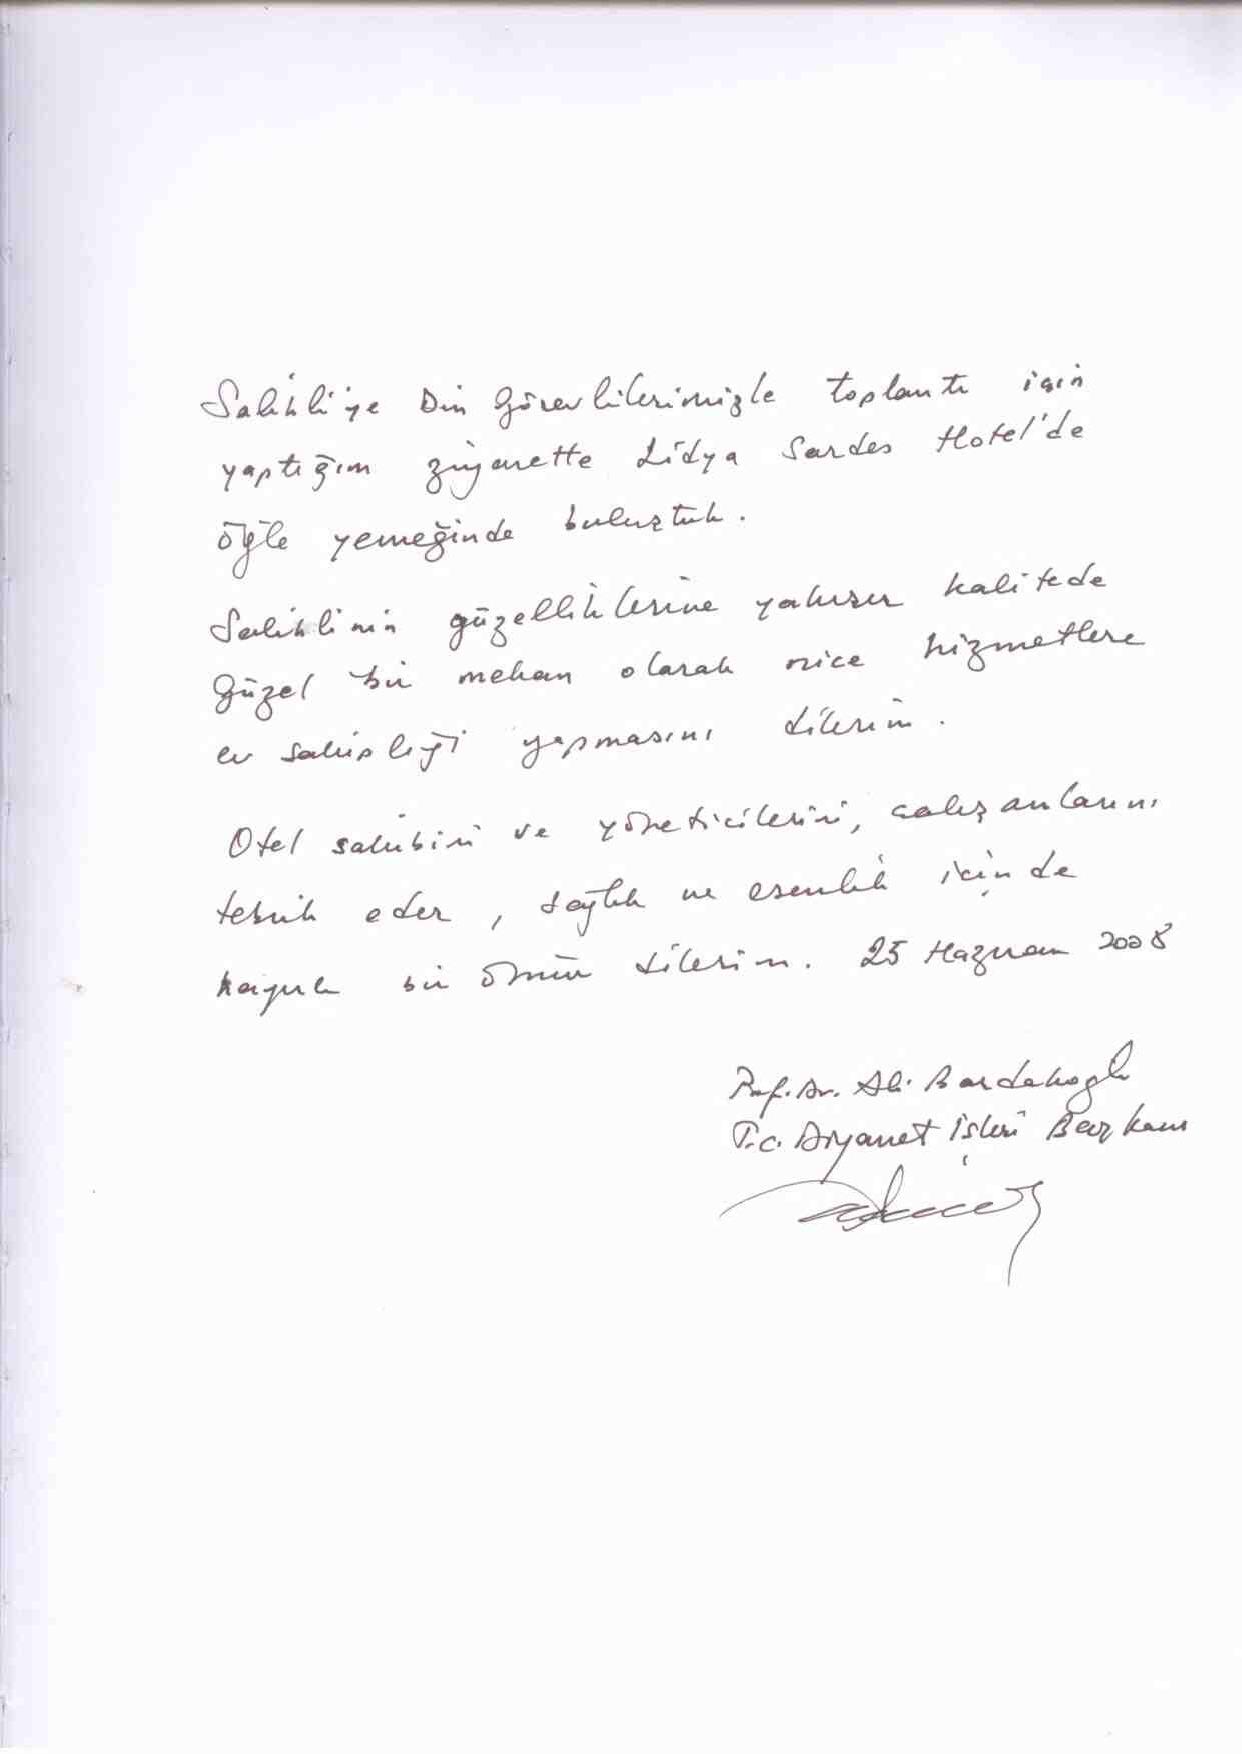 Salihli'ye Din Görevlilerimizle toplantı için
yaptığım ziyarette Lidya Sardes Hotel'de
Öğle yemeğinde buluştuk.
Salihlinin güzelliklerine yakışır kalitede
güzel bir mekan olarak nice hizmetlere
ev sahipliği yapmasını dilerim.
Otel sahibini ve yöneticilerini, çalışanlarını
tebrik eder, sağlık ve esenlik içinde
hayırlı bir ömür dilerim. 25 Haziran 2008
Prof. Dr. Ali Bardakoğlu
T.C. Diyanet İşleri Başkanı